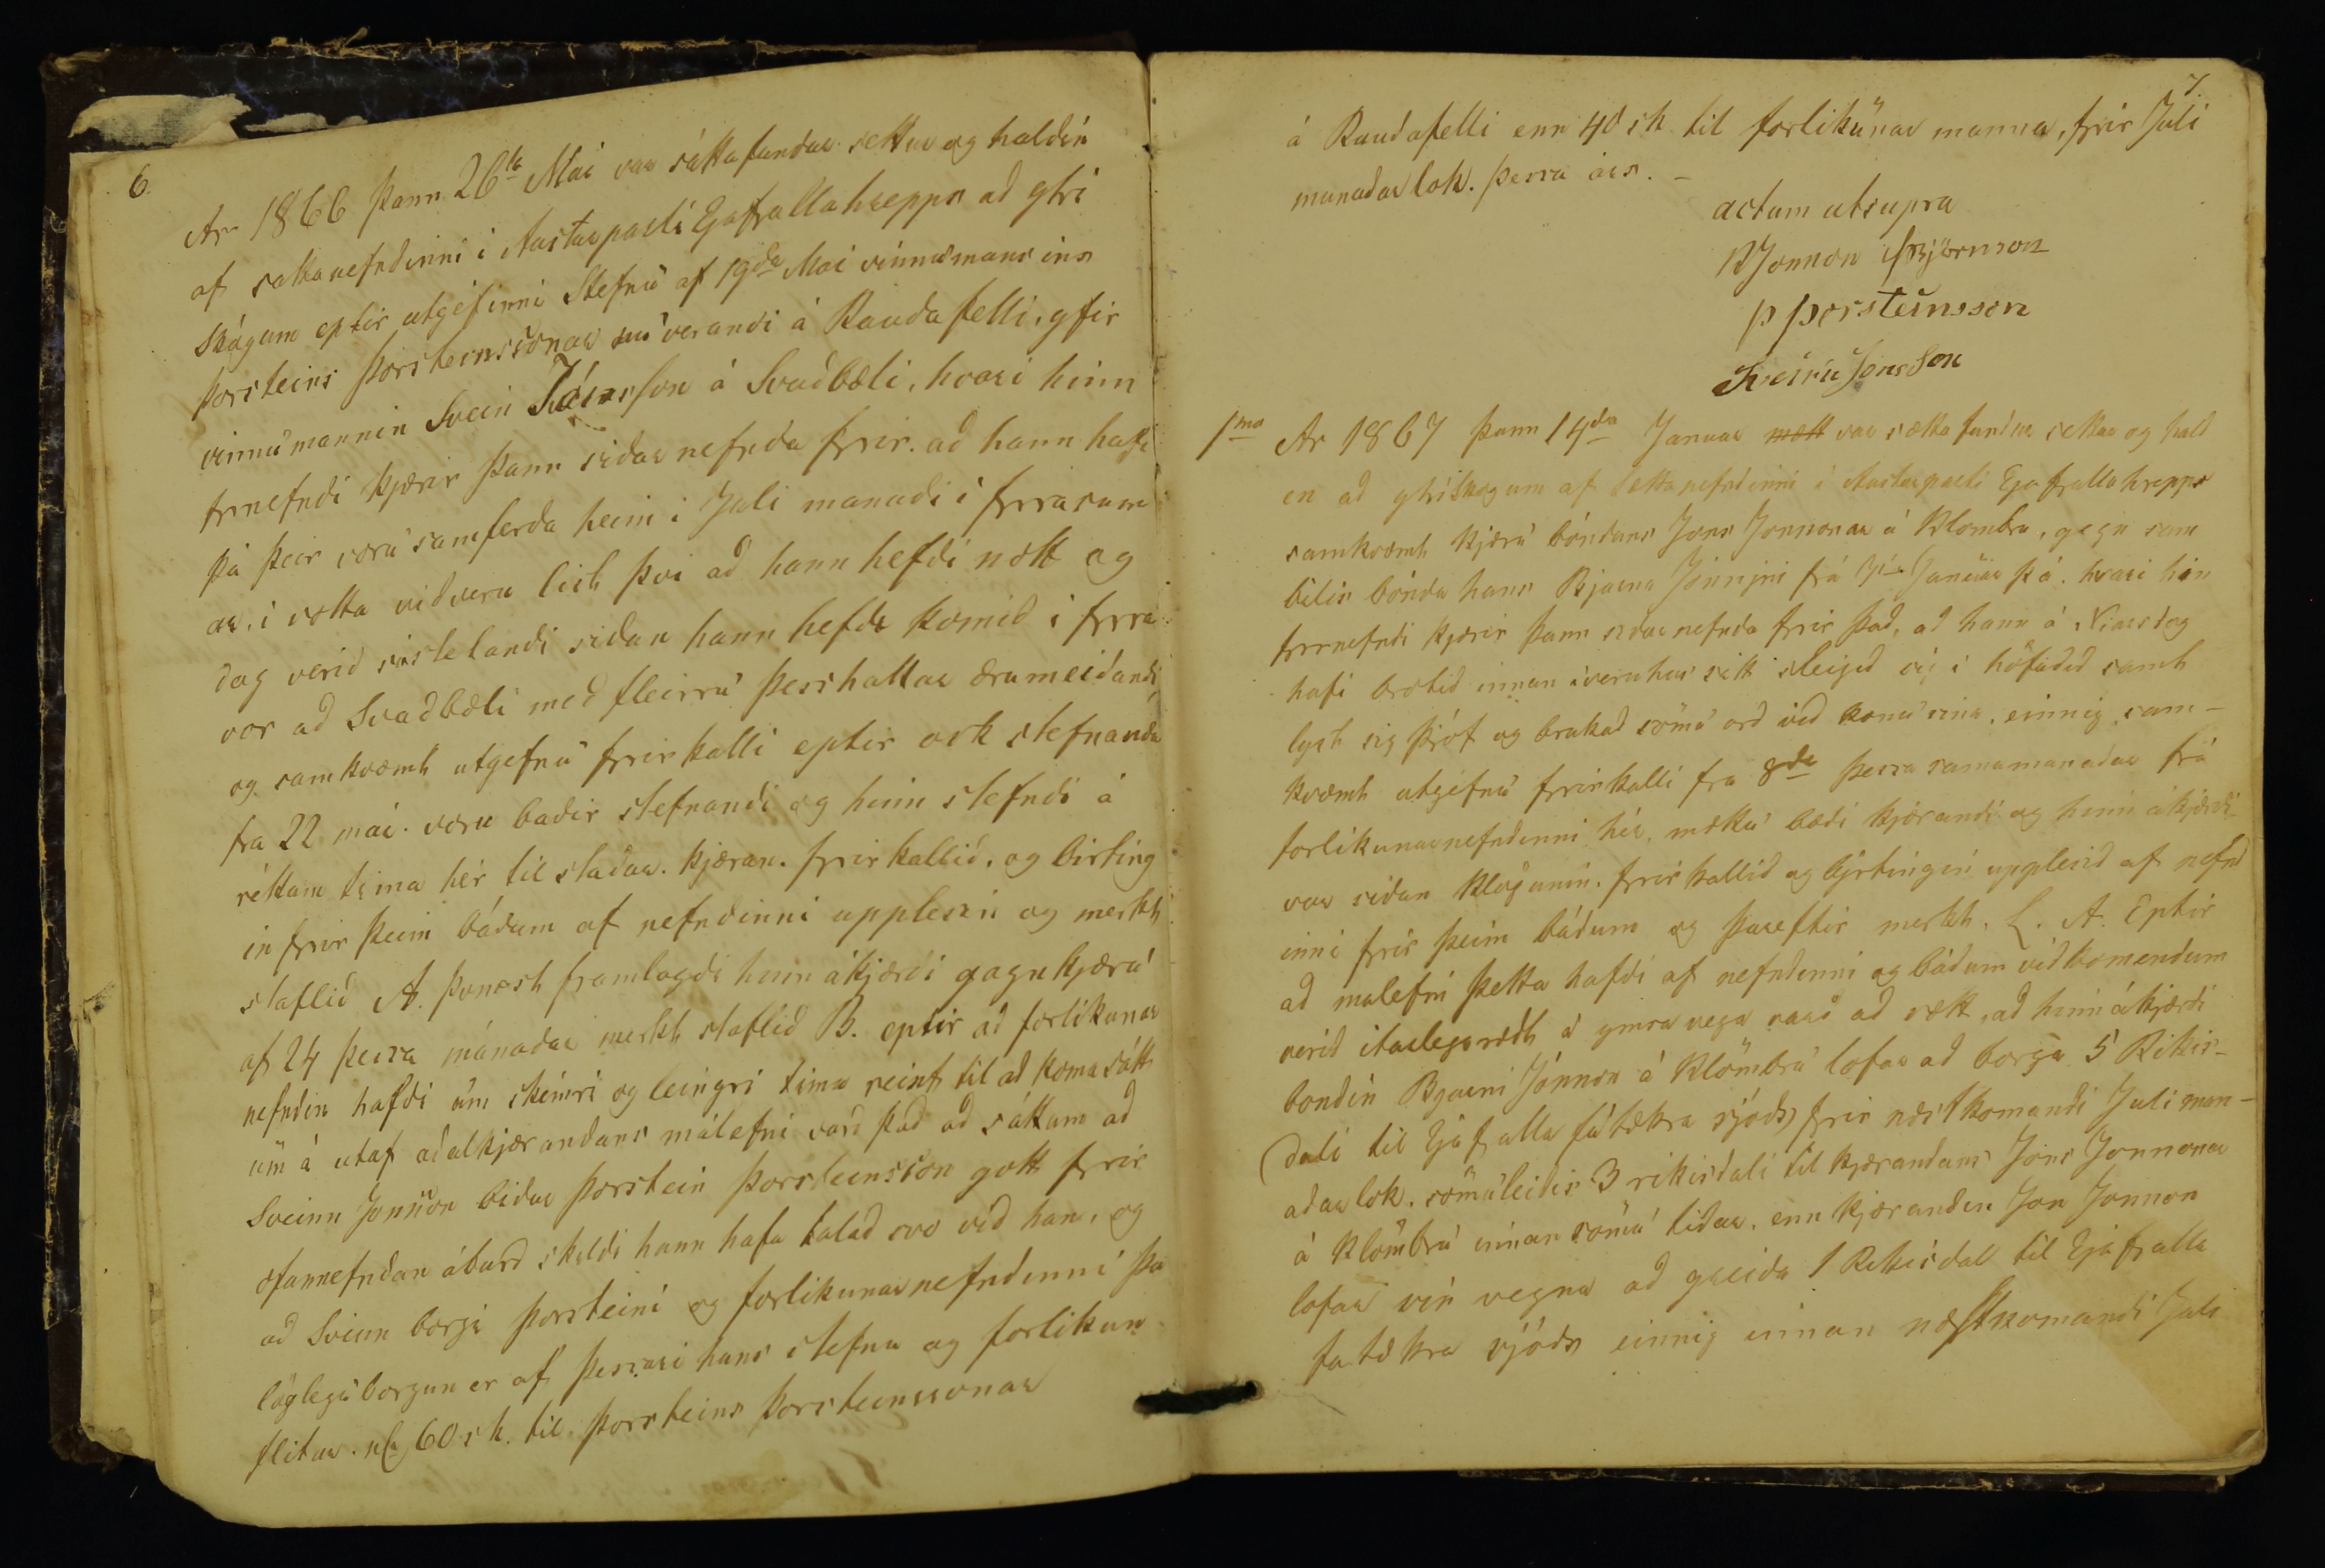 6.
Ar 1866 þann 26ta Mai var sáttafundur settur og haldin
af sattanefndinni i Austurparti Eyafjallahrepps að ytri
Skógum eptir utgefinni Stefnu af 19da Mai vinnumans ins
Þorsteins Þorsteinssonar nú verandi á Rauðafelli, yfir
vinnumannin Svein Jónsson á Svaðbæli, hvari hinn
fyrnefndi kjærir þann siðar nefnda fyrir að hann hafi
þá þeir voru samferða heim i Juli manuði i fyrra sum
ar, i votta viðveru list þvi að hann hefði nótt og
dag verið sistelandi siðan hann hefði komið i fyrra
vor að Svaðbæli með fleirru þesshattar ærumeiðandi,
og samkvæmt utgefnu fyrirkalli eptir ósk stefnanda
fra 22 mái. voru baðir stefnandi og hinn stefndi á
réttum tima hér til staðar. kjæran. fyrirkallið, og birting
in fyrir þeim báðum af nefndinni upplesin og merkt
staflið A. þvinæst framlagði hinn ákjærdi gagnkjæru
af 24 þessa mánaðar merkt staflið B. eptir að forlikunar
nefndin hafði um skémri og leingri tima reint til að koma sátt
um á utaf aðalkjærandans málefni varð það að sáttum að
Sveinn Jonsson biður Þorstein Þorsteinsson gott fyrir
ofannefndan áburð skildi hann hafa talað svo við han, og
að Sveinn borgi Þorsteini og forlikunarnefndinni þá
löglegu borgun er af þessari hans stefnu og forlikun
flitur. nl. 60 sk. til Þorsteins Þorsteinssonar
7.
á Rauðafelli enn 40 sk til forlikunar manna, fyrir Juli
manaðarlok. þessa árs. –
actum utsupra
Jonnon Björnson
Þ Þorsteinsson
Sveirn JonsSon
1ma Ar 1867 þann 14da Januar mætt var sættafundur settur og hald
en að ytriSkogum af Sættanefndinni i Austurparti Eyafjallahrepps
samkvæmt kjæru bóndans Jons Jonnonar á Klombru, gegn sam
bilis bónda hans Bjarna Jónnjni frá 7da Januar þ á. hvari hin
fyrrnefndi kjærir þann siðar nefnda fyrir það, að hann á Niarsdag
hafi brotið innan iveruhus sitt sleigið sig i höfuðið samt
lyst sig þjóf og brukað sömu orð við konu sina. einnig sam-
kvæmt utgefnu fyrirkalli fra 8da þessa samamanaðar frá
forlikunarnefndinni hér, mættu bæði kjærandi og hinn ákjærdi
var siðan Klögunin. fyrirkallið og byrtingin upplesið af nefnd
inni fyrir þeim báðum og þareftir merkt. L. A. Eptir
að malefni þetta hafði af nefndinni og báðum viðkomendum
verið itarlega rætt á ymsa vega varð að sætt, að hinn ákjærdi
bondin Bjarni Jónnon á Klömbru lofar að borga 5 Rikis-
dali til Eyafjalla fátækra sjóðs, fyrir næstkomandi Juli man-
aðarlok. sömuleiðis 3 rikisdali til kjærandans Jons Jonnonar
á Klömbru innan sömu tiðar. enn kjærandin Jon Jonnon
lofar sin vegna að greiða 1 Rikisdal til Eyafjalla
fatækra sjóðs einnig innan næstkomandi Juli